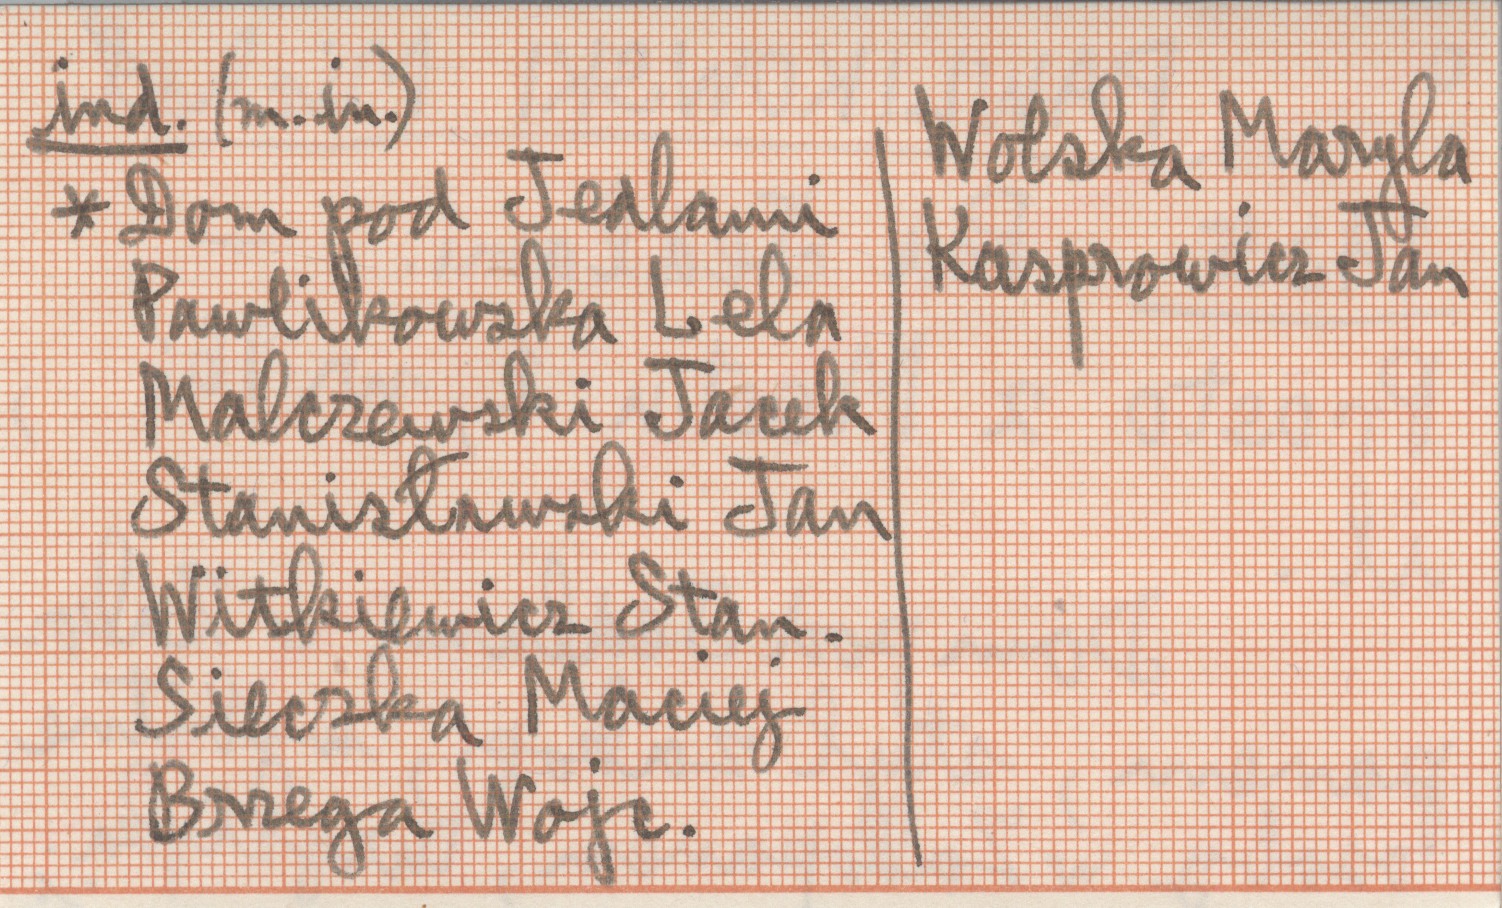 ind. (m.in.)
* Dom pod Jedlami
Pawlikowska Lela
Malczewski Jacek
Stanisławski Jan
Witkiewicz Stan.
Sieczka Maciej
Brzega Wojc.
Wolska Maryla
Kasprowicz Jan